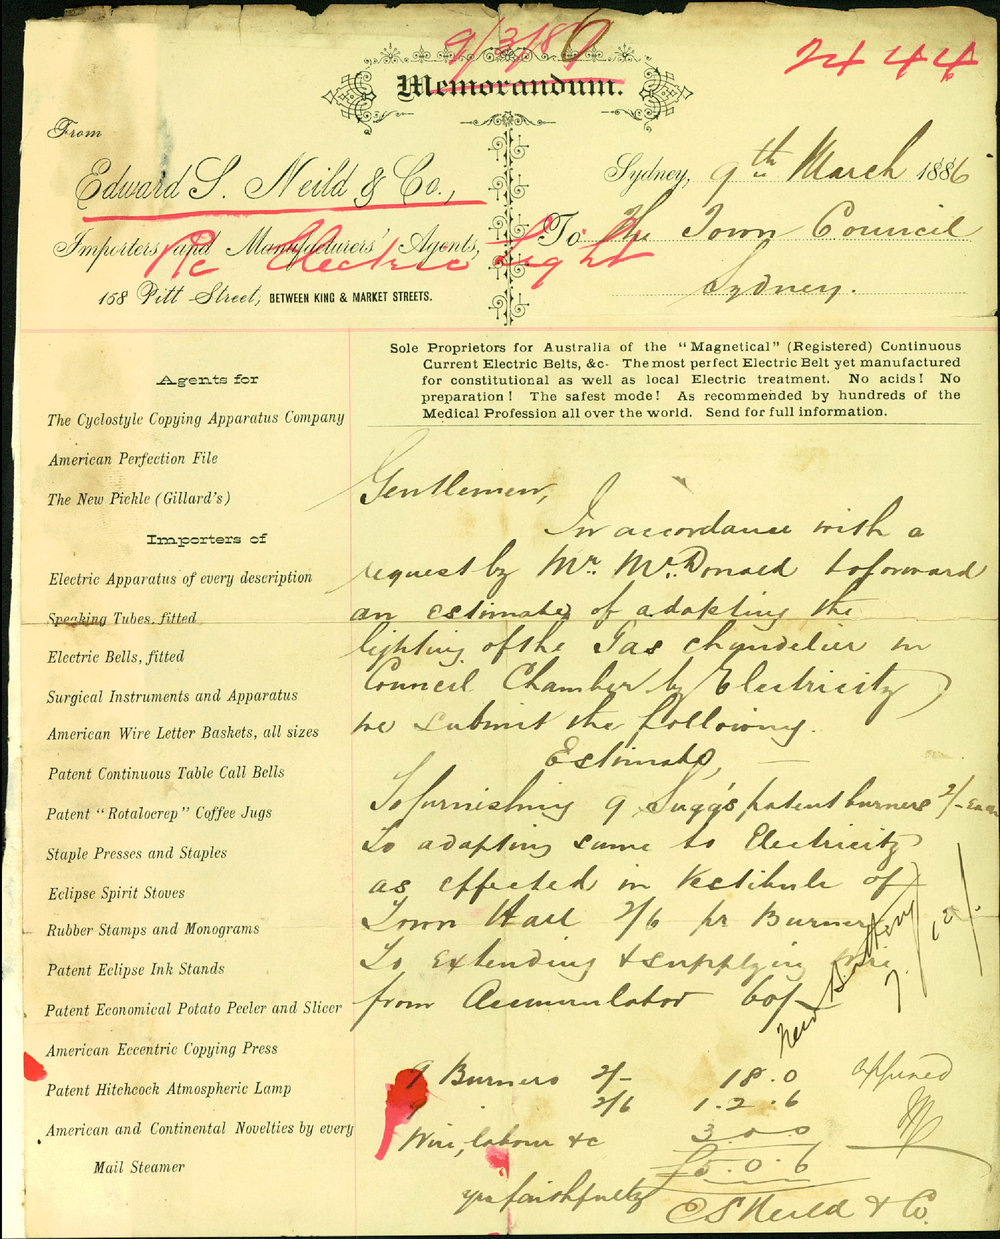 9/3/86
2444
Memorandum.
From
Edward S. Neild & Co.,
Importers and Manufacturers' Agents,
Re Electric Light
158 Pitt Street, BETWEEN KING & MARKET STREETS.
Sydney, 9th March 1886
To The Town Council
Sydney.
Sole Proprietors for Australia of the "Magnetical" (Registered) Continuous
Current Electric Belts, &c- The most perfect Electric Belt yet manufactured
for constitutional as well as local Electric treatment. No acids! No
preparation! The safest mode! As recommended by hundreds of the
Medical Profession all over the world. Send for full information.
Agents for
The Cyclostyle Copying Apparatus Company
American Perfection File
The New Pickle (Gillard's)
Importers of
Electric Apparatus of every description
Speaking Tubes, fitted
Electric Bells, fitted
Surgical Instruments and Apparatus
American Wire Letter Baskets, all sizes
Patent Continuous Table Call Bells
Patent "Rotaloerep" Coffee Jugs
Staple Presses and Staples
Eclipse Spirit Stoves
Rubber Stamps and Monograms
Patent Eclipse Ink Stands
Patent Economical Potato Peeler and Slicer
American Eccentric Copying Press
Patent Hitchcock Atmospheric Lamp
American and Continental Novelties by every
Mail Steamer
Gentlemen,
In accordance with a
request by Mr. McDonald to forward
an estimate of adapting the
lighting of the Gas chandelier in
Council Chamber by Electricity
we submit the following
Estimate,
To furnishing 9 Sugg's patent burners 2/- Each
To adapting same to Electricity
as effected in Vestibule of
Town Hall 2/6 pr Burner
To Extending & supplying wire
from Accumulator 60/-
New Battery
9 Burners 2/- 18.0
2/6 1.2.6
Wire, labour &c 3.0.0
£5.0.6
yrs faithfully
E S Neild & Co.